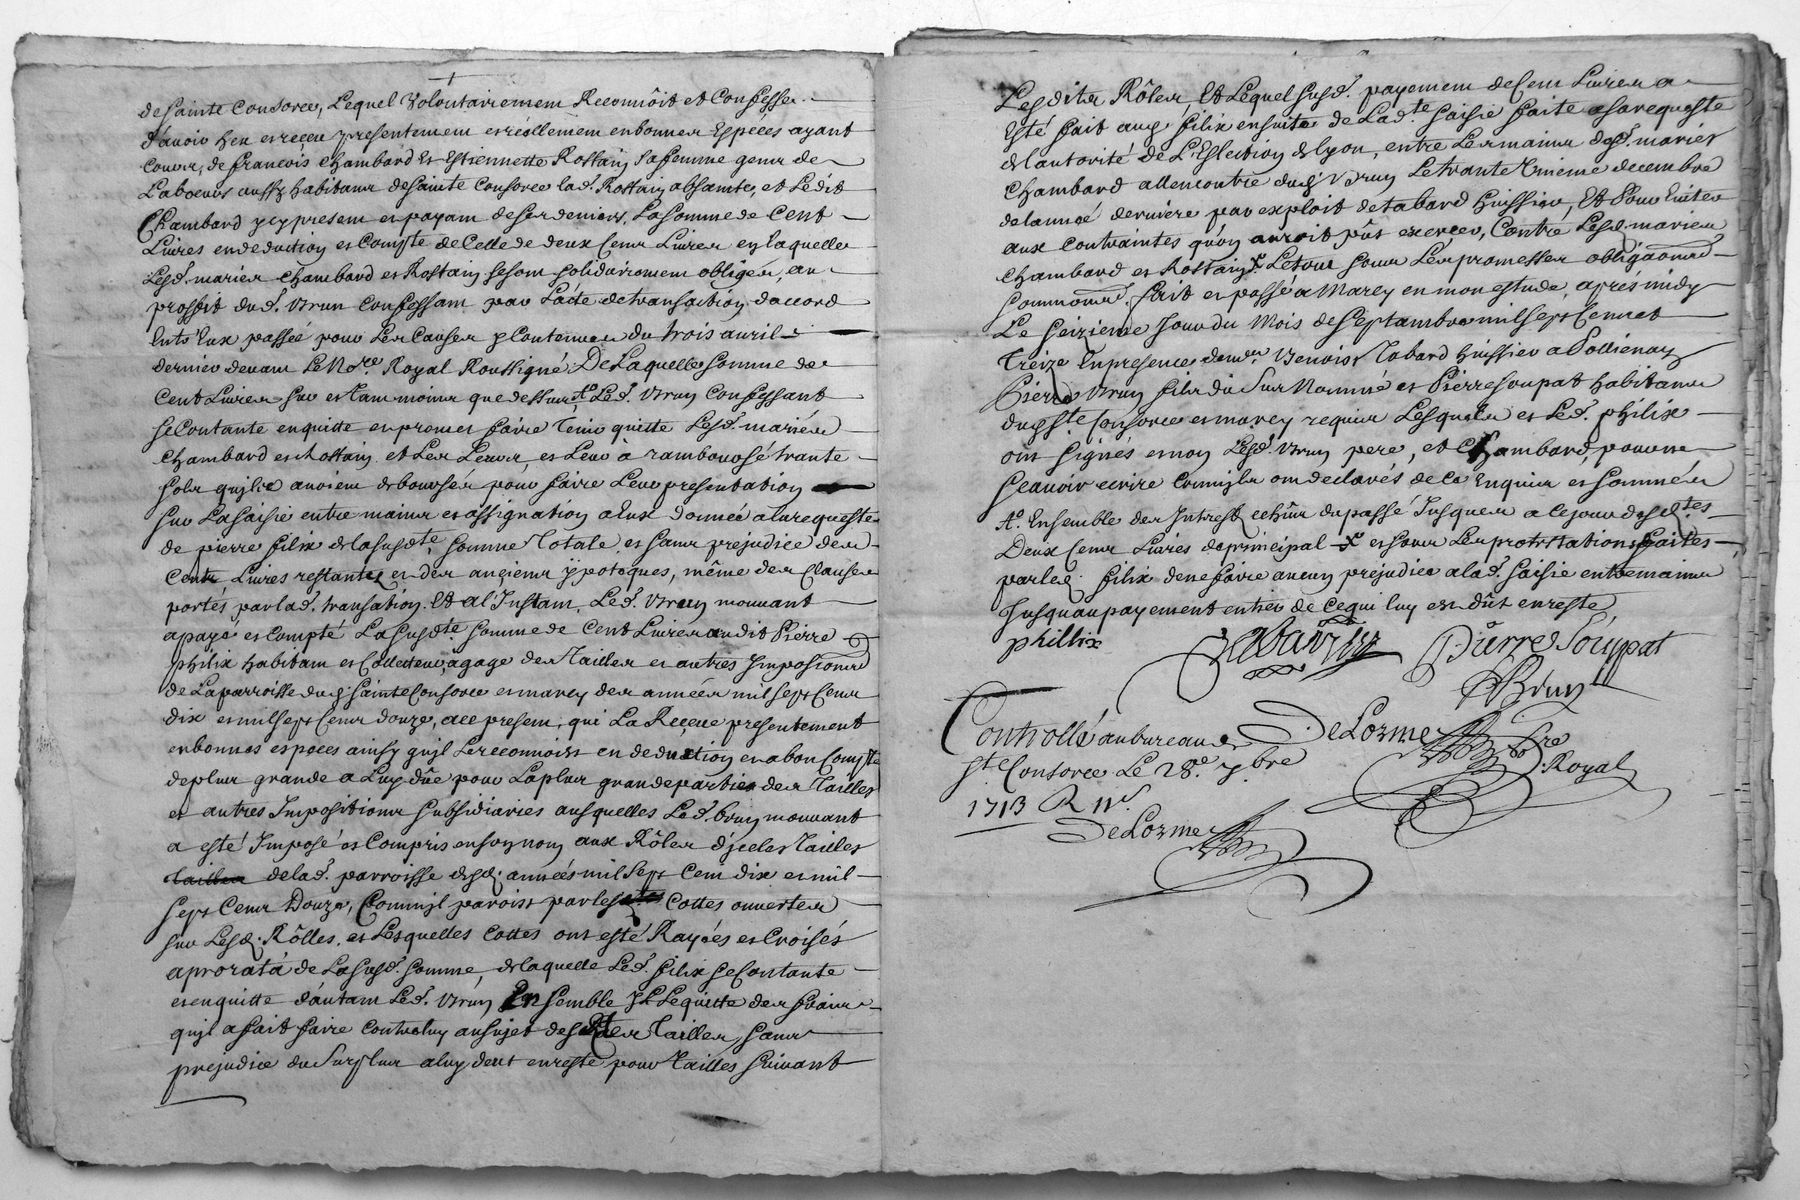 de Sainte Consorce, Lequel Volontairement Reconnôit et Confesse
d'avoir heu et receu presentement et réellement en bonnes Espéces ayant
Cours, de francois Chambard Et Estiennette Rostaing sa femme gens de
Labeurs aussy habitans de Sainte Consorce lad. Rostaing absante, et Ledit
Chambard y cy present et payant de ses deniers, La somme de Cent
Livres en deduction et Compte de Celle de deux Cens Livres en laquelle
Lesd. mariés Chambard et Rostaing se sont solidairement obligés, au
proffit dud. Brun Confessant par L'acte de transaction d'accord
Entr'Eux passée pour Les Causes y Contenues du trois avril
dernier devant Le No.re Royal Roussigné, De Laquelle somme de
Cent Livres sur et tant moins que dessus, Led. Brun Confessant
se Contante en quitte et promet faire tenir quitte Lesd. mariés
Chambard et Rostaing et Les Leurs, et Leur à rambourcé trante
sols qu'jls avoient deboursés pour faire Leur presentation
sur La saisie entre mains et assignation a Eux donnée a la requeste
de pierre filix de la susd.te somme totale, et sans prejudice des
Cents Livres restantes et des anciens ypoteques, même des Clauses
portés par lad. transation. Et al'Instant, Led. Brun mouvant
a payé et Compté La susd.te somme de Cent Livres audit Pierre
philix habitant et Collecteur, agage des Tailles et autres Jmpositions
de La parroisse dud. Sainte Consorce et marcy des années mil sept Cens
dix et mil sept Cens douze, a ce present, qui La Reçeue presentement
en bonnes espoces ainsy qu'jl Le reconnoist en deduction et a bon Compte
de plus grande a Luy dûe pour La plus grande partie des Tailles
et autres Jmpositions Subsidiaries ausquelles Led. brun mouvant
a esté Jmposé et Compris en son nom aux Rôles d'jcelles Tailles
Tailles de lad. parroisse desd. années mil Sept Cent dix et mil
sept Cens Douze, Comm'jl paroist par les Cottes ouvertes
sur Lesd. Rôlles, et Lesquelles Cottes ont esté Rayées et Croisés
a prorata de La susd. somme, de laquelle Led. filix se Contante
et en quitte d'autant Led. Brun, Ensemble Jl Le quitte des fraix
qu'jl a fait faire Contre luy au sujet desdittes Tailles, sans
prejudice du Surplus a luy deut en reste pour Tailles Suivant
Lesdits Rôles, Et Lequel susd. payement de Cent Livres a
Esté fait aud. filix ensuite de Lad.te saisie faite a sa requeste
de l'autorité de L'Eslection de lyon, entre Les mains desd. mariés
Chambard allencontre dud. Brun Le trante Unieme decembre
de l'année derniere par exploit de tabard huissier, Et Pour Eviter
aux Contraintes qu'on auroit pût exercer, Contre Lesd. mariés
Chambard et Rostaing Le tout sous Les promesses obligaôns
Soumons. fait et passé a Marcy en mon estude, aprés midy
Le Seizieme Jour du Mois de Septambre mil Sept Cens et
treize En presence de m.re Benoist Tabard huissier a Pollienay
Pierre Brun filx du Sus Nommé et Pierre Soupat habitans
dud. S.te Consorce et marcy requis Lesquels et Led. philix
ont signés et non Lesd. Brun pere, et Chambard, pour ne
sçavoir ecrire Comm'jls ont declarés de Ce Enquis et sommés
Ensemble des Jntrest echûs du passé Jusques a ce jour desd.tes
Deux Cens Livres de principal et sous Les protestations faites
par led. filix de ne faire aucun prejudice a lad. saisie entre mains
Jusqu'au payement entier de Ce qui luy est dût en reste,
phillix
Tabard
Pierre Souppat
P Brun
Controllé au bureau de
S.te Consorce Le 28.e 7.bre
1713 R 11.s
DeLorme
DeLorme
N.re Royal